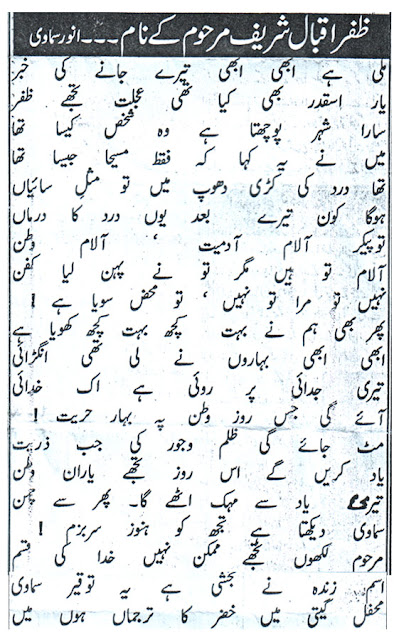 ظفر اقبال شریف مرحوم کے نام ۔۔۔ انور سماوی
ملی ہے ابھی ابھی تیرے جانے کی خبر
یار اسقدر بھی کیا تھی عجلت تجھے ظفر
سارا شہر پوچھتا ہے وہ شخص کیسا تھا
میں نے یہ کہا کہ فقط مسیحا جیسا تھا
تھا درد کی کڑی دھوپ میں تو مثلِ سائباں
ہوگا کون تیرے بعد یوں درد کا درماں
تو پیکر آلام آدمیت ، آلام وطن
آلام تو ہیں مگر تو نے پہن لیا کفن
نہیں تو مرا تو نہیں ، تو محض سویا ہے !
پھر بھی ہم نے بہت کچھ بہت کچھ کھویا ہے
ابھی ابھی بہاروں نے لی تھی انگڑائی
تیری جدائی پر روئی ہے اک خدائی
آئے گی جس روز وطن پہ بہار حریت !
مٹ جائے گی ظلم وجور کی جب ذریت
یاد کریں گے اس روز تجھے یاران وطن
تیری یاد سے مہک اٹھے گا۔ پھر سے چمن
سماوی دیکھتا ہے تجھ کو ہنوز سربزم !
مرحوم لکھوں تجھے ممکن نہیں خدا کی قسم
اسم زندہ نے بخشی ہے یہ توقیر سماوی
محفل گیتی میں خضر کا ترجماں ہوں میں